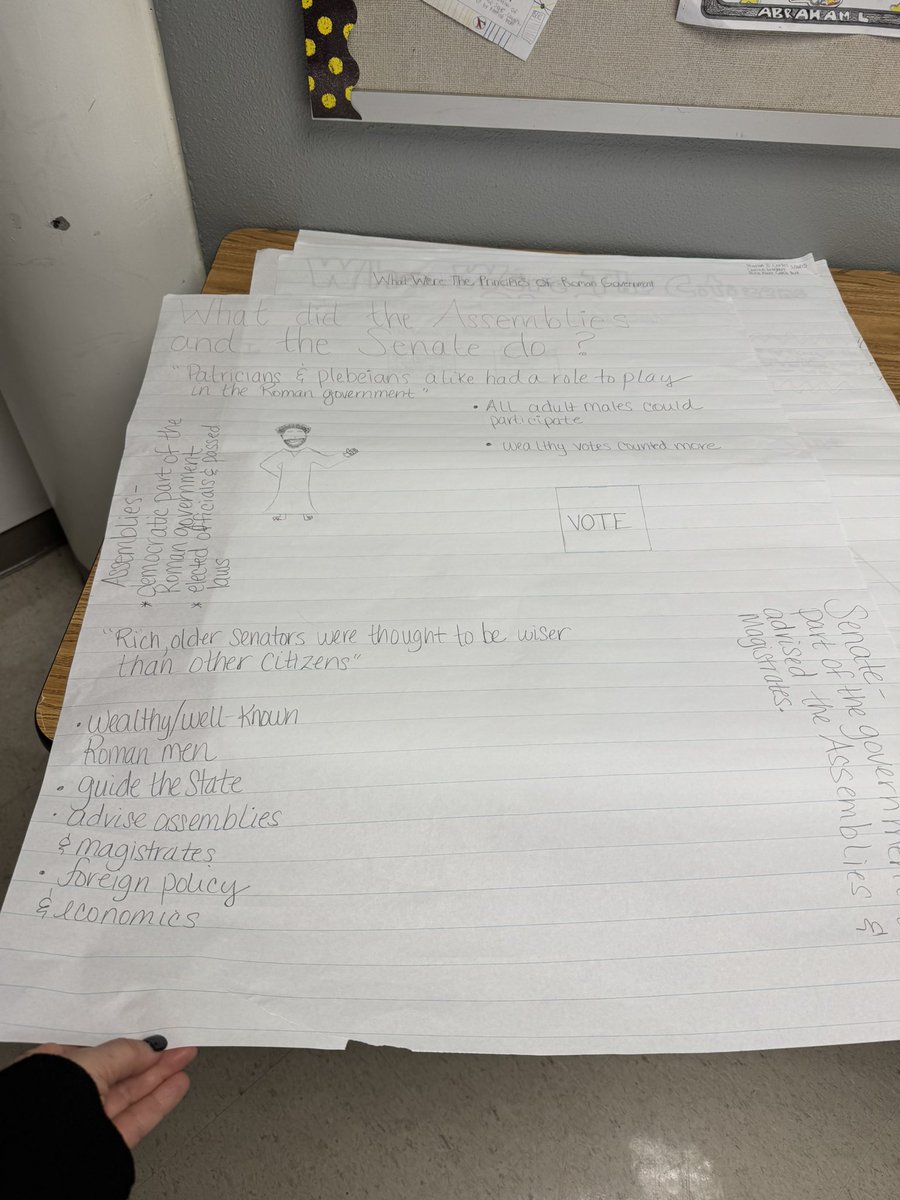 ABRAHAM L
What Were The Principles Of Roman Government
What did the Assemblies
and the Senate do?
"Patricians & plebeians alike had a role to play
in the Roman government"
• All adult males could
participate
• wealthy votes counted more
Assemblies-
* democratic part of the
Roman government
* elected officials & passed
laws
VOTE
"Rich, older senators were thought to be wiser
than other citizens"
Senate-
part of the government
advised the Assemblies &
magistrates.
• wealthy/well-known
Roman men
• guide the State
• advise assemblies
& magistrates
• foreign policy
& economics